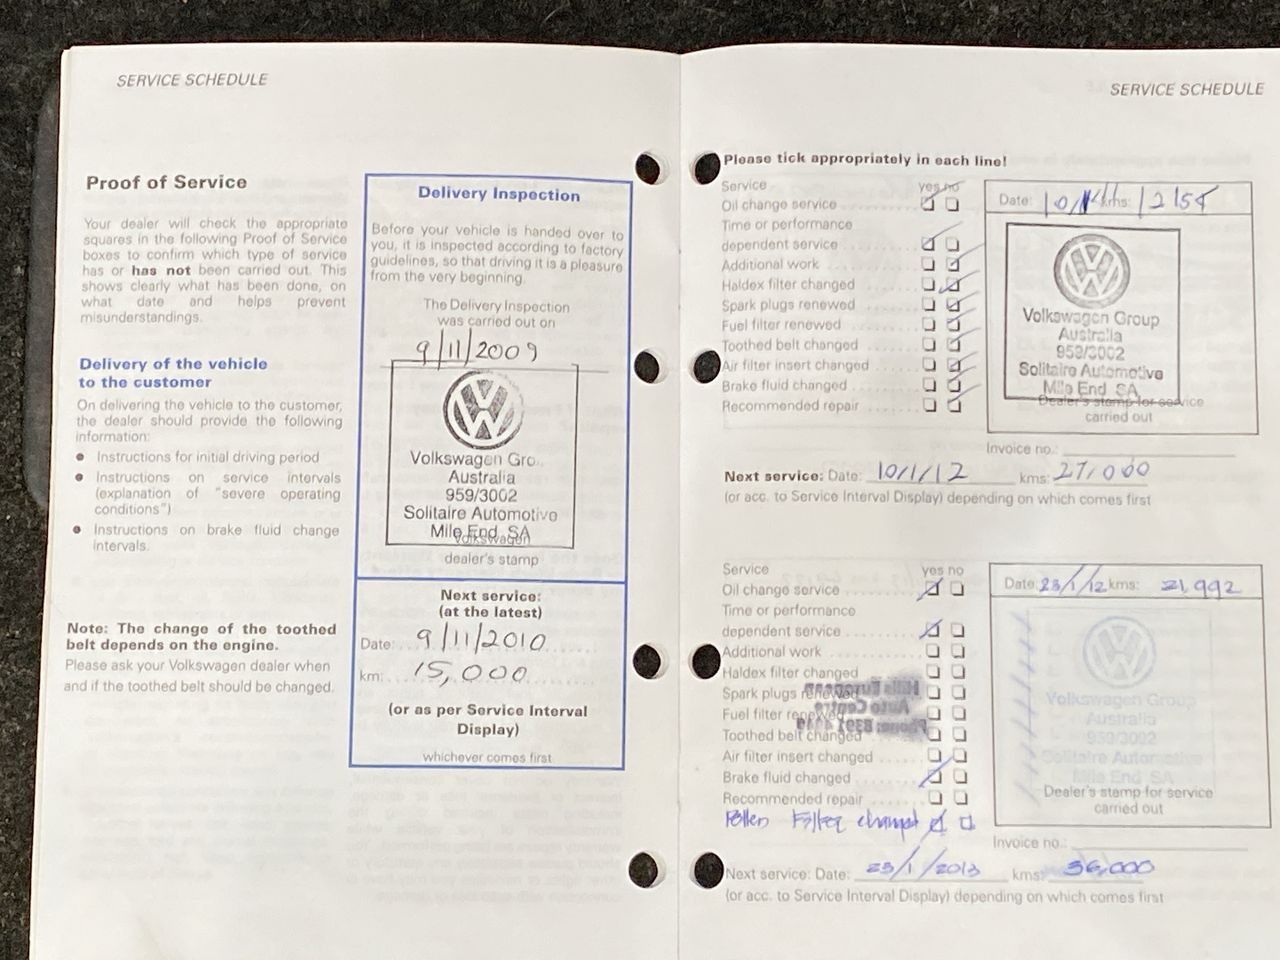 SERVICE SCHEDULE
Proof of Service
Your dealer will check the appropriate
squares in the following Proof of Service
boxes to confirm which type of service
has or has not been carried out. This
shows clearly what has been done, on
what date and helps prevent
misunderstandings.
Delivery of the vehicle
to the customer
On delivering the vehicle to the customer,
the dealer should provide the following
information:
Instructions for initial driving period
Instructions on service intervals
(explanation of "severe operating
conditions")
Instructions on brake fluid change
intervals.
Note: The change of the toothed
belt depends on the engine.
Please ask your Volkswagen dealer when
and if the toothed belt should be changed.
Delivery Inspection
Before your vehicle is handed over to
you, it is inspected according to factory
guidelines, so that driving it is a pleasure
from the very beginning.
The Delivery Inspection
was carried out on
9/11/2009
Volkswagen Gro
Australia
959/3002
Solitaire Automotive
Mile End SA
Volkswagen
dealer's stamp
Next service:
(at the latest)
Date: 9/11/2010
km: 15,000
(or as per Service Interval
Display)
whichever comes first
SERVICE SCHEDULE
Please tick appropriately in each line!
Service yes no
Oil change service
Time or performance
dependent service
Additional work
Haldex filter changed
Spark plugs renewed
Fuel filter renewed
Toothed belt changed
Air filter insert changed
Brake fluid changed
Recommended repair
Date: kms:
Volkswagen Group
Australia
959/3002
Solitaire Automotive
Mile End SA
Dealer's stamp for service
carried out
Invoice no.:
Next service: Date: 10/1/12 kms: 27,000
(or acc. to Service Interval Display) depending on which comes first
Service yes no
Oil change service
Time or performance
dependent service
Additional work
Haldex filter changed
Spark plugs renewed
Fuel filter renewed
Toothed belt changed
Air filter insert changed
Brake fluid changed
Recommended repair
Pollen Filter changed
Date: 23/1/12 kms: 21,992
Volkswagen Group
Australia
959/3002
Solitaire Automotive
Mile End SA
Dealer's stamp for service
carried out
Invoice no.:
Next service: Date: 23/1/2013 kms: 36,000
(or acc. to Service Interval Display) depending on which comes first